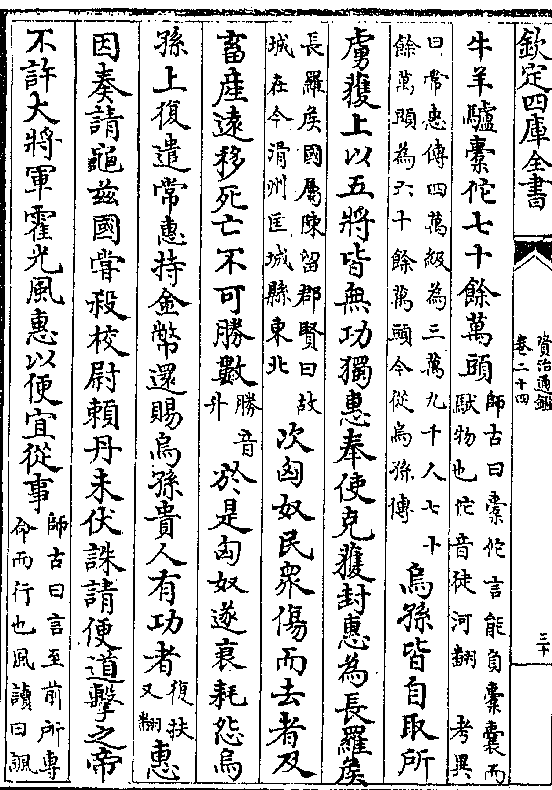 欽定四庫全書
資治通鑑
卷二十四
三十
牛羊驢橐佗七十餘萬頭師古曰橐佗言能負橐囊而䭾物也佗音徒河翻 考異
曰常惠傳四萬級為三萬九千人七十餘萬頭為六十餘萬頭今從烏孫傳 烏孫皆自取所
虜獲上以五將皆無功獨惠奉使克獲封惠為長羅侯
長羅侯國屬陳留郡賢曰故城在今滑州匡城縣東北 次匈奴民衆傷而去者及
畜産逺移死亡不可勝數勝音升 於是匈奴遂衰耗怨烏
孫上復遣常惠持金幣還賜烏孫貴人有功者復扶又翻 惠
因奏請龜兹國嘗殺校尉頼丹未伏誅請便道擊之帝
不許大將軍霍光風惠以便宜從事師古曰言至前所專命而行也風讀曰諷